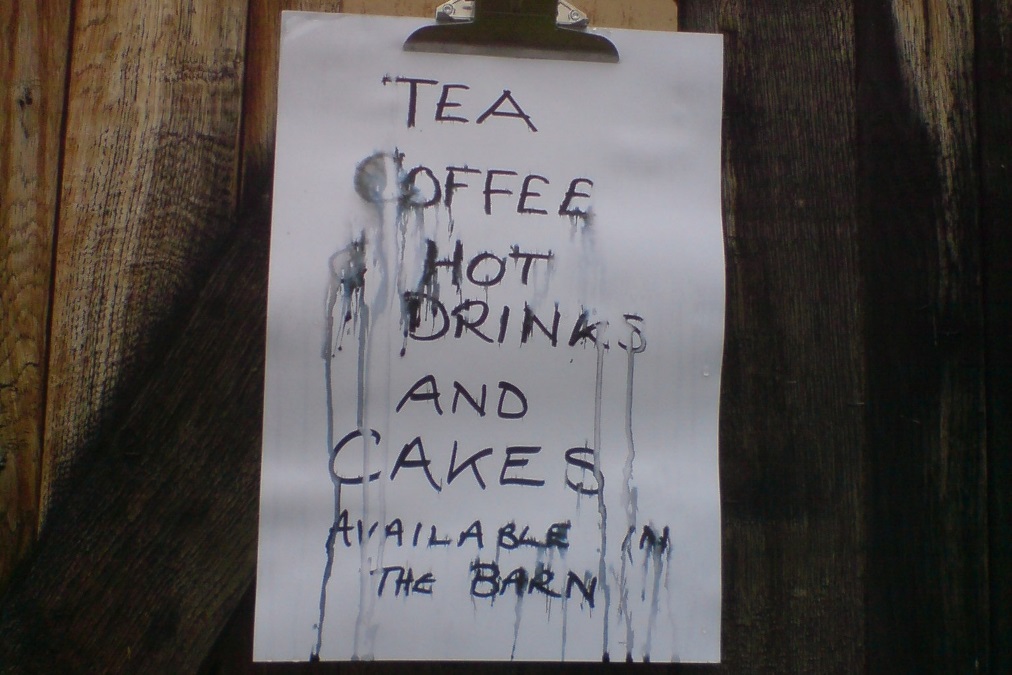 TEA
COFFEE
HOT
DRINKS
AND
CAKES
AVAILABLE IN
THE BARN